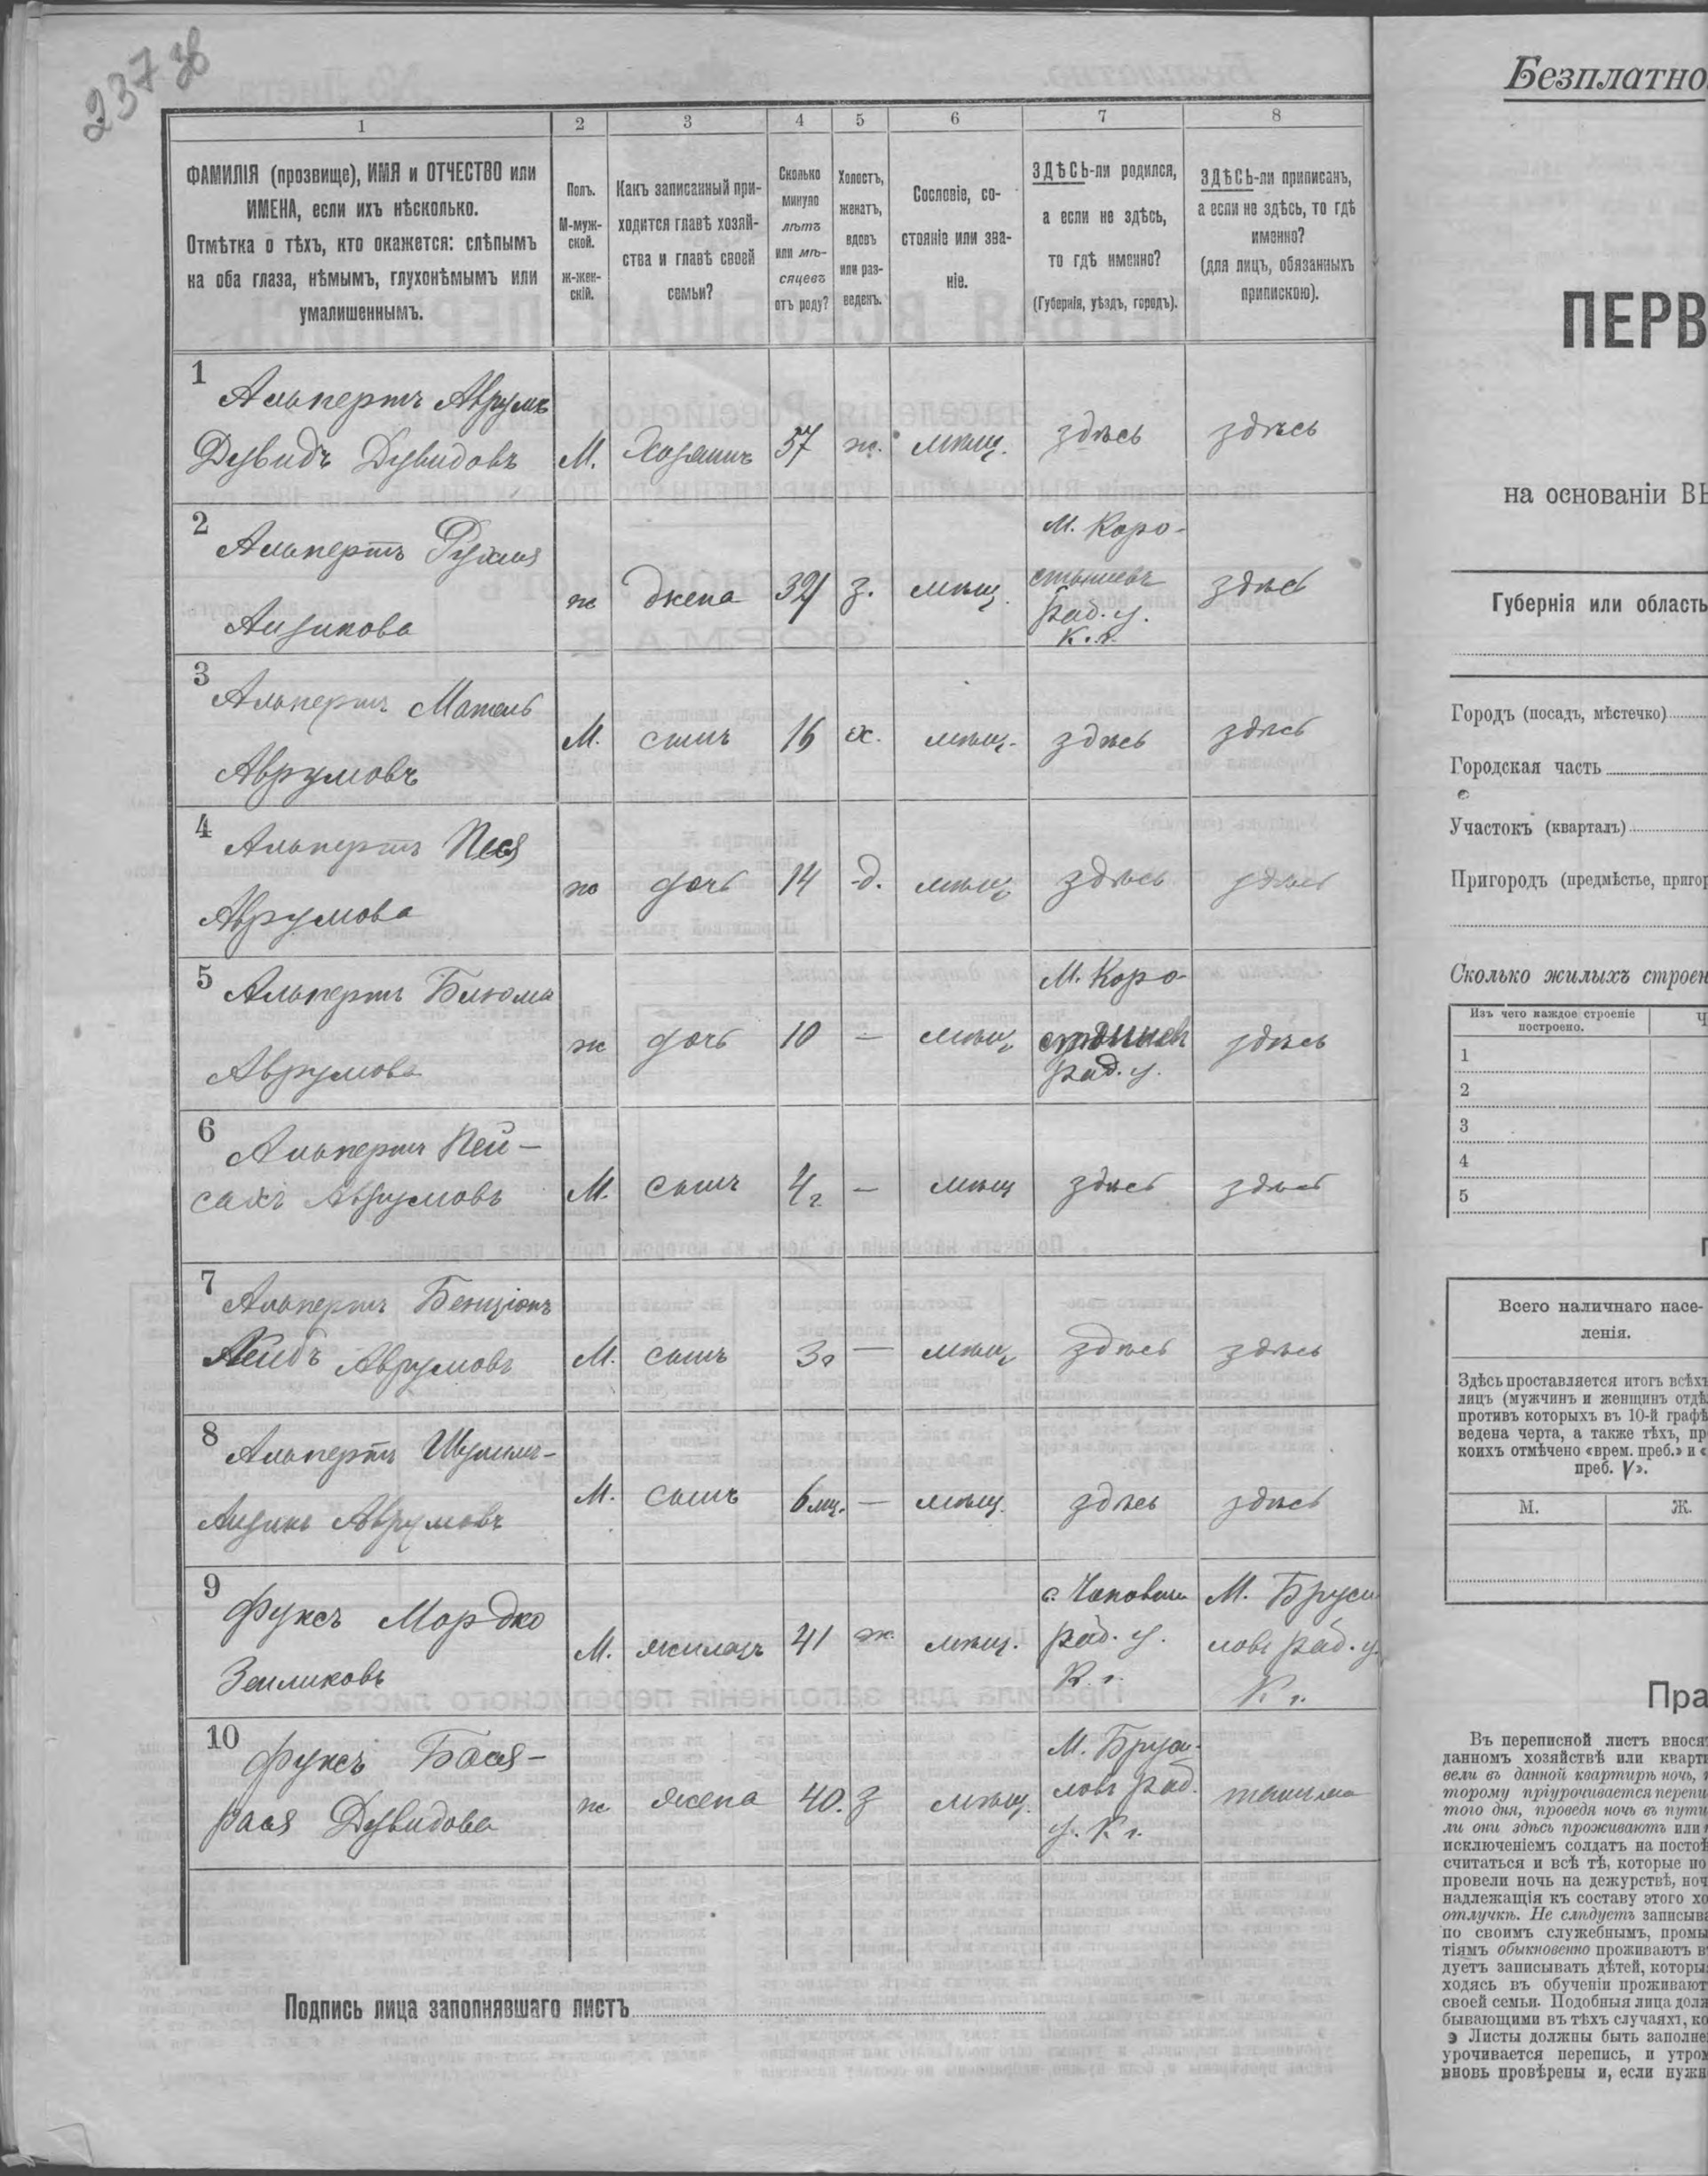 237 зв
1 2 3 4 5 6 7 8
ФАМИЛІЯ (прозвище), ИМЯ и ОТЧЕСТВО или
ИМЕНА, если ихъ нѣсколько.
Отмѣтка о тѣхъ, кто окажется: слѣпымъ
на оба глаза, нѣмымъ, глухонѣмымъ или
умалишеннымъ.
Полъ.
М-муж-
ской.
ж-жен-
скій.
Какъ записанный при-
ходится главѣ хозяй-
ства и главѣ своей
семьи?
Сколько
минуло
лѣтъ
или мѣ-
сяцевъ
отъ роду?
Холостъ,
женатъ,
вдовъ
или раз-
веденъ.
Сословіе, со-
стояніе или зва-
ніе.
ЗДѢСЬ-ли родился,
а если не здѣсь,
то гдѣ именно?
(Губернія, уѣздъ, городъ).
ЗДѢСЬ-ли приписанъ,
а если не здѣсь, то гдѣ
именно?
(для лицъ, обязанныхъ
припискою).
1
Альпертъ Аврумъ
Дувидъ Дувидовъ М. Хозяинъ 37 ж. мѣщ. здѣсь здѣсь
2
Альпертъ Рухля
Айзикова ж жена 32 з. мѣщ. здѣсь
М. Коро-
стышевъ
Рад. у.
К. г.
3
Альпертъ Мотель
Аврумовъ М. сынъ 16 х. мѣщ. здѣсь здѣсь
4
Альпертъ Песя
Аврумова ж дочь 14 д. мѣщ. здѣсь здѣсь
5
Альпертъ Блюма
Аврумова ж дочь 10 — мѣщ. здѣсь
М. Коро-
стышев
Рад. у.
6
Альпертъ Пей-
сахъ Аврумовъ М. сынъ 4 г. — мѣщ здѣсь здѣсь
7
Альпертъ Бенціонъ
Лейбъ Аврумовъ М. сынъ 3 г — мѣщ. здѣсь здѣсь
8
Альпертъ Шулимъ-
Айзикъ Аврумовъ М. сынъ 6 мц. — мѣщ. здѣсь здѣсь
9
Фуксъ Мордко
Зейликовъ М. жилецъ 41 ж. мѣщ.
Рад. у.
К. г.
М. Бруси
ловъ Рад. у.
К г.
10
Фуксъ Бася-
Рася Дувидова ж. жена 40. з мѣщ.
М. Бруси-
ловъ Рад.
у. К г.
тамже
Подпись лица заполнявшаго листъ
Безплатно
ПЕРВ
на основаніи ВЫ
Губернія или область
Городъ (посадъ, мѣстечко)
Городская часть
Участокъ (кварталъ)
Пригородъ (предмѣстье, пригор
Сколько жилыхъ строен
Изъ чего каждое строеніе
построено.
Ч
1
2
3
4
5
Всего наличнаго насе-
ленія.
Здѣсь проставляется итогъ всѣхъ
лицъ (мужчинъ и женщинъ отдѣ
противъ которыхъ въ 10-й графѣ
ведена черта, а также тѣхъ, пр
коихъ отмѣчено «врем. преб.» и «
преб. V».
М. Ж.
Пра
Въ переписной листъ внося
данномъ хозяйствѣ или кварти
вели въ данной квартирѣ ночь,
торому пріурочивается перепи
того дня, проведя ночь въ пути
ли они здѣсь проживаютъ или
исключеніемъ солдатъ на постоѣ
считаться и всѣ тѣ, которые по
провели ночь на дежурствѣ, ноч
надлежащія къ составу этого хо
отлучкѣ. Не слѣдуетъ записыва
по своимъ служебнымъ, промы
тіямъ обыкновенно проживаютъ в
дуетъ записывать дѣтей, которы
ходясь въ обученіи проживают
своей семьи. Подобныя лица долж
бывающими въ тѣхъ случаяхъ, ко
Листы должны быть заполне
урочивается перепись, и утром
вновь провѣрены и, если нужн